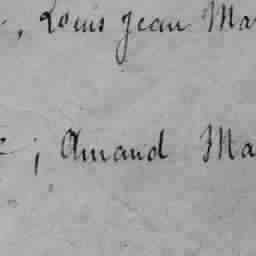 , Louis Jean Ma
; Amand Ma